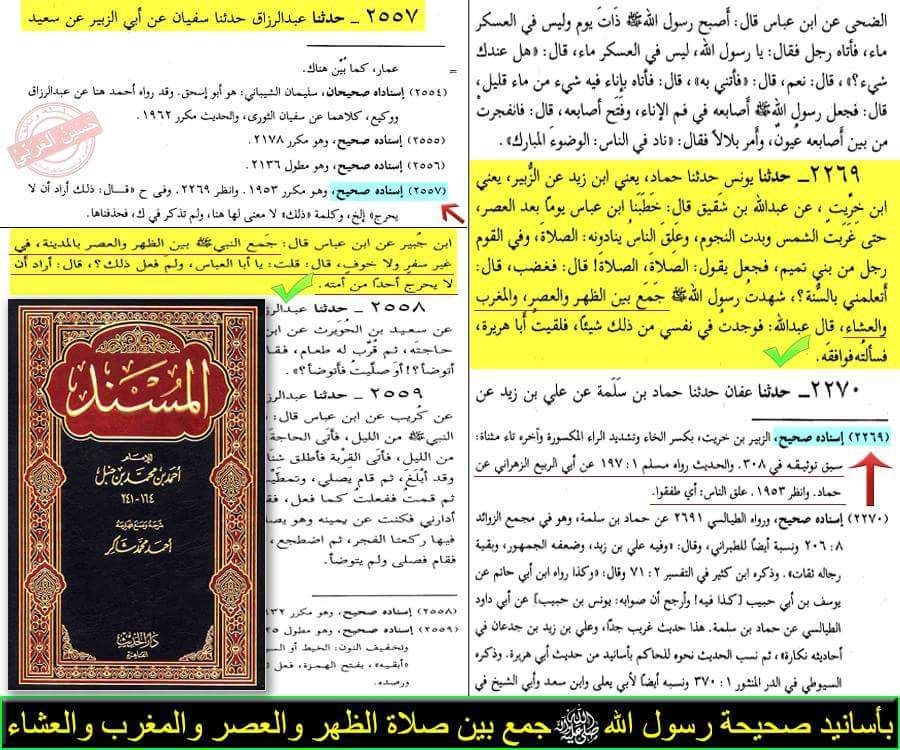 الضحى عن ابن عباس قال: أصبح رسول اللهﷺ ذَاتَ يوم وليس في العسكر
ماء، فأتاه رجل فقال: يا رسول الله، ليس في العسكر ماء، قال: «هل عندك
شيء؟»، قال: نعم، قال: «فأتني به»، قال: فأتاه بإناء فيه شيء من ماء قليل،
قال: فجعل رسول اللهﷺ أصابعه في فم الإناء، وفَتَح أصابعه، قال: فانفجرتْ
من بين أصابعه عُيونٌ، وأمر بلالاً فقال: «ناد في الناس: الوضوءَ المبارك».
٢٢٦٩ ــ حدثنا يونس حدثنا حماد، يعني ابن زيد عن الزُّبير، يعني
ابن خِرِّيت، عن عبدالله بن شقيق قال: خَطَبَنا ابن عباس يوماً بعد العصر،
حتى غَرَبَت الشمس وبدت النجوم، وعَلِقَ الناسُ ينادونه: الصلاةَ، وفي القوم
رجل من بني تميم، فجعل يقول: الصلاةَ، الصلاةَ! قال: فغضب، قال:
أتعلمني بالسُّنة؟، شهدتُ رسول اللهﷺ جَمَعَ بين الظهر والعصر، والمغرب
والعشاء، قال عبدالله: فوجدتُ في نفسي من ذلك شيئًا، فلقيتُ أبا هريرة،
فسألتُه فوافقَه.
٢٢٧٠ ــ حدثنا عفان حدثنا حماد بن سَلَمة عن علي بن زيد عن
(٢٢٦٩) إسناده صحيح، الزبير بن خريت، بكسر الخاء وتشديد الراء المكسورة وآخره تاء مثناة:
سبق توثيقه في ٣٠٨. والحديث رواه مسلم ١ : ١٩٧ عن أبي الربيع الزهراني عن
حماد. وانظر ١٩٥٣. علق الناس: أي طفقوا.
(٢٢٧٠) إسناده صحيح، ورواه الطيالسي ٢٦٩١ عن حماد بن سلمة، وهو في مجمع الزوائد
٨ : ٢٠٦ ونسبة أيضًا للطبراني، وقال: «وفيه علي بن زيد، وضعفه الجمهور، وبقية
رجاله ثقات». وذكره ابن كثير في التفسير ٢ : ٧١ وقال: «وكذا رواه ابن أبي حاتم عن
يوسف بن أبي حبيب [كذا فيه! وأرجح أن صوابه: يونس بن حبيب] عن أبي داود
الطيالسي عن حماد بن سلمة. هذا حديث غريب جدًا، وعلي بن زيد بن جدعان في
أحاديثه نكارة»، ثم نسب الحديث نحوه للحاكم بأسانيد من حديث أبي هريرة. وذكره
السيوطي في الدر المنثور ١ : ٣٧٠ ونسبه أيضًا لأبي يعلى وابن سعد وأبي الشيخ في
٢٥٥٧ ــ حدثنا عبدالرزاق حدثنا سفيان عن أبي الزبير عن سعيد
= عمار، كما بُيِّن هناك.
(٢٥٥٤) إسناداه صحيحان، سليمان الشيباني: هو أبو إسحق. وقد رواه أحمد هنا عن عبدالرزاق
ووكيع، كلاهما عن سفيان الثوري، والحديث مكرر ١٩٦٢.
(٢٥٥٥) إسناده صحيح، وهو مكرر ٢١٧٨.
(٢٥٥٦) إسناده صحيح، وهو مطول ٢١٣٦.
(٢٥٥٧) إسناده صحيح، وهو مكرر ١٩٥٣. وانظر ٢٢٦٩. وفى ح «قال: ذلك أراد أن لا
يحرج» إلخ، وكلمة «ذلك» لا معنى لها هنا، ولم تذكر في ك، فحذفناها.
حسين العربي
ابن جُبير عن ابن عباس قال: جَمع النبيﷺ بين الظهر والعصر بالمدينة، في
غير سفر ولا خوف، قال: قلت: يا أبا العباس، ولمَ فعل ذلك؟، قال: أراد أن
لا يحرجَ أحدًا من أمته.
٢٥٥٨ ــ حدثنا عبدالرز
عن سعيد بن الحُوَيرث عن ابن
حاجته، ثم قُرِّب له طعام، فقا
أتوضأ؟! أوَ صلَّيتُ فأتوضأ؟».
٢٥٥٩ ــ حدثنا عبدالرز
عن كُريب عن ابن عباس قال:
النبيﷺ من الليل، فأتى الحاجة
من الليل، فأتى القربة فأطلق شنا
وقد أبْلَغَ، ثم قام يصلي، وتمطَّي
ثم قمت ففعلتُ كما فعل، ف
أدارني فكنت عن يمينه وهو يص
فيها ركعتا الفجر، ثم اضطجع،
فقام فصلى ولم يتوضأ.
(٢٥٥٨) إسناده صحيح، وهو مكرر
(٢٥٥٩) إسناده صحيح، وهو مطول
وتخفيف النون: الخيط أو الس
«أبقيه»، بفتح الهمزة، فعل
ورصده.
المُسْنَد
للإمام
أحمد بن محمد بن حنبل
١٦٤-٢٤١
شرحه وصنع فهارسه
أحمد محمد شاكر
دار الحديث
القاهرة
بأسانيد صحيحة رسول الله ﷺ جمع بين صلاة الظهر والعصر والمغرب والعشاء